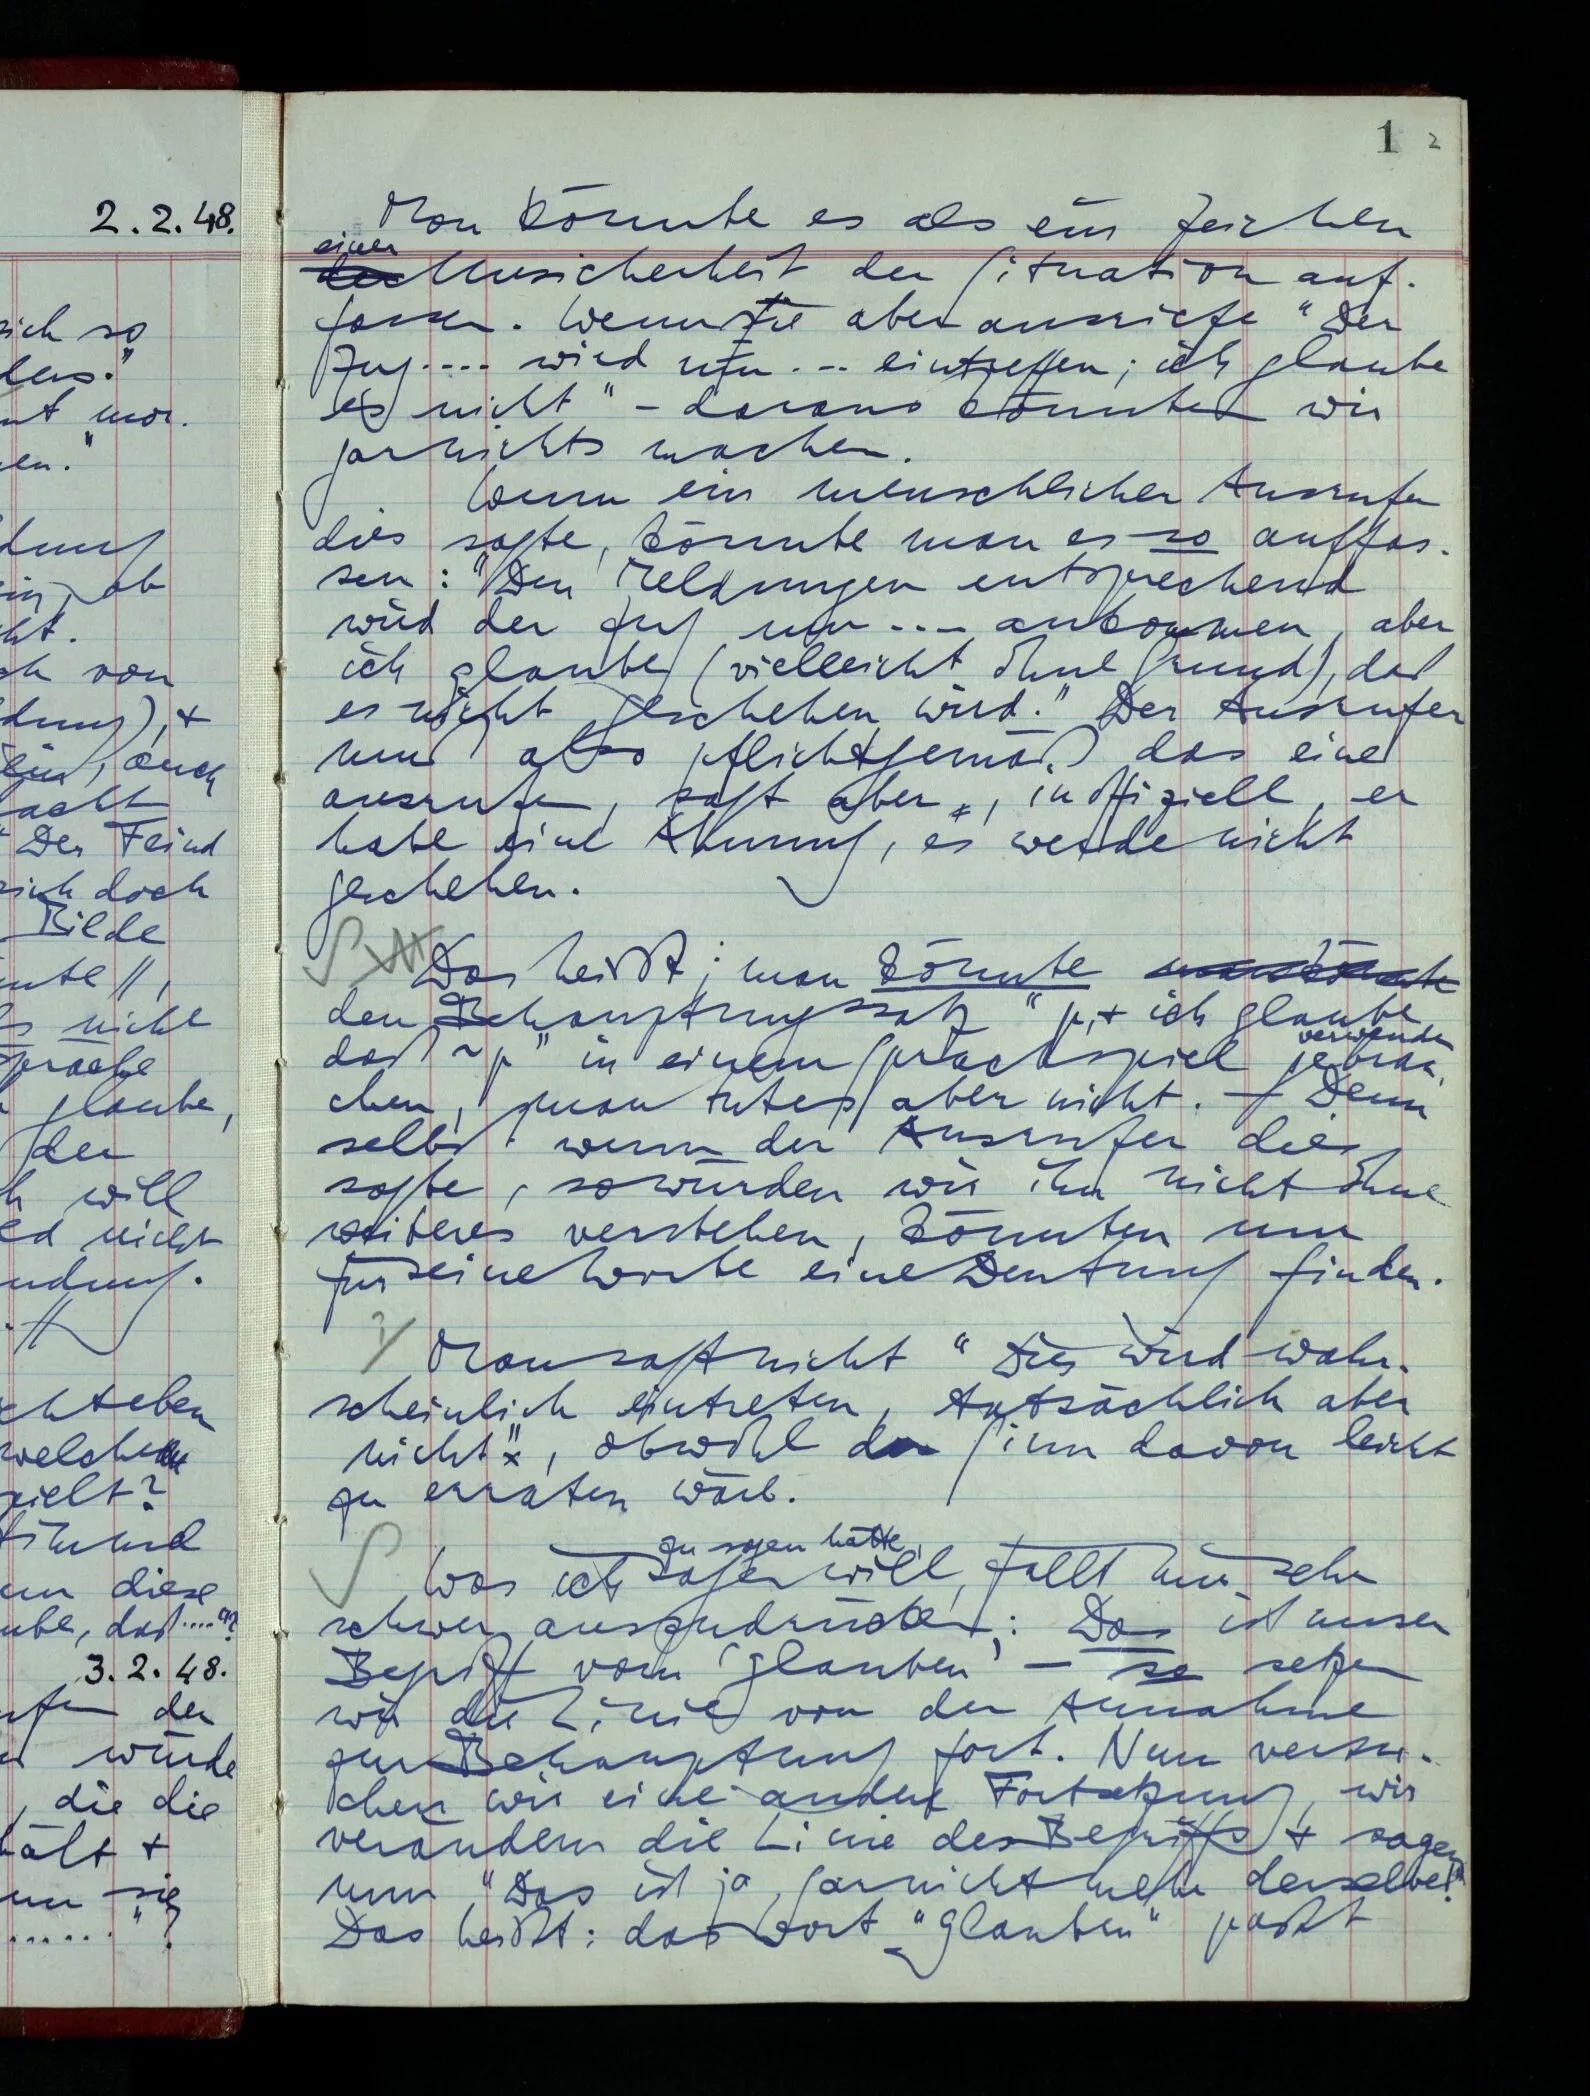 2.2.48.
sich so
ders."
mt mor.
en."
dung
in, ob
ht.
ch von
dung), +
ein, auch
macht
" Der Feind
sich doch
Bilde
nnte //,
s nicht
Sprache
glaube,
der
h will
rd nicht
ndung.
cht eben
welchem
spielt?
stimmend
nn diese
ube, daß...."?
3.2.48.
ufen der
würde
, die die
hält +
nn sie
......"?
1 2
Man könnte es als ein Zeichen
einer
der Unsicherheit der Situation auf-
fassen. Wenn sie aber ausriefe "Der
Zug.... wird um ... eintreffen; ich glaube
es nicht" – daraus könnten wir
garnichts machen.
Wenn ein menschlicher Ausrufer
dies sagte, könnte man es so auffas-
sen: "Den Meldungen entsprechend
wird der Zug um .... ankommen, aber
ich glaube (vielleicht ohne Grund), daß
es nicht geschehen wird." Der Ausrufer
muß also pflichtgemäß das eine
ausrufen, sagt aber, inoffiziell, er
habe eine Ahnung, es werde nicht
geschehen.
S
Das heißt; man könnte man könnte
den Behauptungssatz "p, + ich glaube
verwenden
daß ~p" in einem Sprachspiel gebrau-
chen, man tut es aber nicht. – Denn
selbst wenn der Ausrufer dies
sagte, so würden wir ihn nicht ohne
weiteres verstehen, könnten nur
für seine Worte eine Deutung finden.
?/
Man sagt nicht "Dies wird wahr-
scheinlich eintreten, tatsächlich aber
nicht", obwohl der Sinn davon leicht
zu erraten wäre.
S
zu sagen hätte,
Was ich sagen will, fällt mir sehr
schwer auszudrücken: Das ist unser
Begriff vom 'glauben' – so setzen
wir die Linie von der Annahme
zur Behauptung fort. Nun versu-
chen wir eine andere Fortsetzung, wir
verändern die Linie des Begriffs + sagen
nun "Das ist ja garnicht mehr derselbe!"
Das heißt: das Wort "glauben" paßt